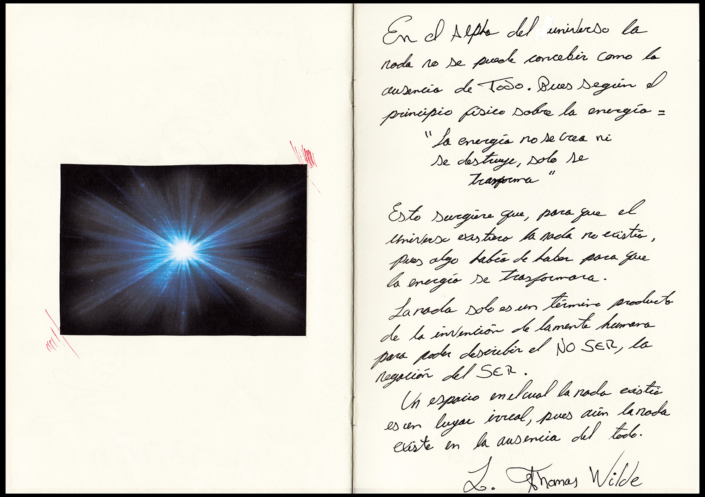 En el Alpha del universo la
nada no se puede concebir como la
ausencia de Todo. Pues según el
principio físico sobre la energía =
"La energía no se crea ni
se destruye, solo se
trasforma"
Esto surgiere que, para que el
universo existiera la nada no existía,
pues algo había de haber para que
la energía se trasformara.
La nada solo es un término producto
de la invención de la mente humana
para poder describir el NO SER, la
negación del SER.
Un espacio en el cual la nada existe
es un lugar irreal, pues aún la nada
existe en la ausencia del todo.
L. Thomas Wilde